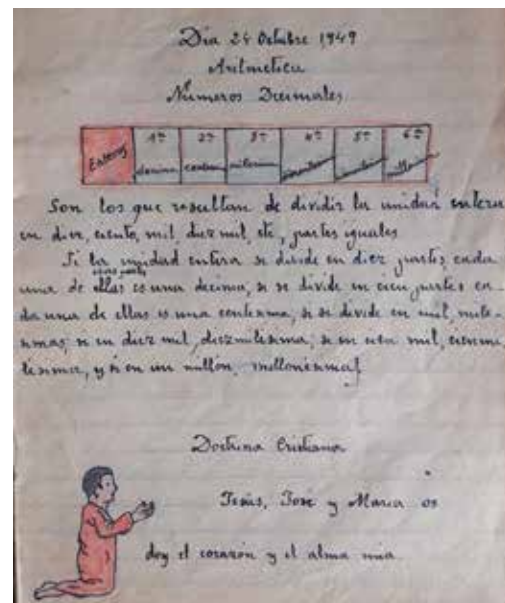 Día 24 Octubre 1949
Aritmética
Números Decimales
Enteros 1º 2º 3º 4º 5º 6º
Son los que resultan de dividir la unidad entera
en diez, ciento, mil, diez mil, etc, partes iguales
Si la unidad entera se divide en diez partes, cada
una de ellas es una décima, si se divide en cien partes ca-
da una de ellas es una centésima, si se divide en mil, milé-
simas, si en diez mil, diezmilésima, si en cien mil, cienmi-
lésima, y si en un millón, millonésima
Doctrina Cristiana
Jesús, José y María os
doy el corazón y el alma mía